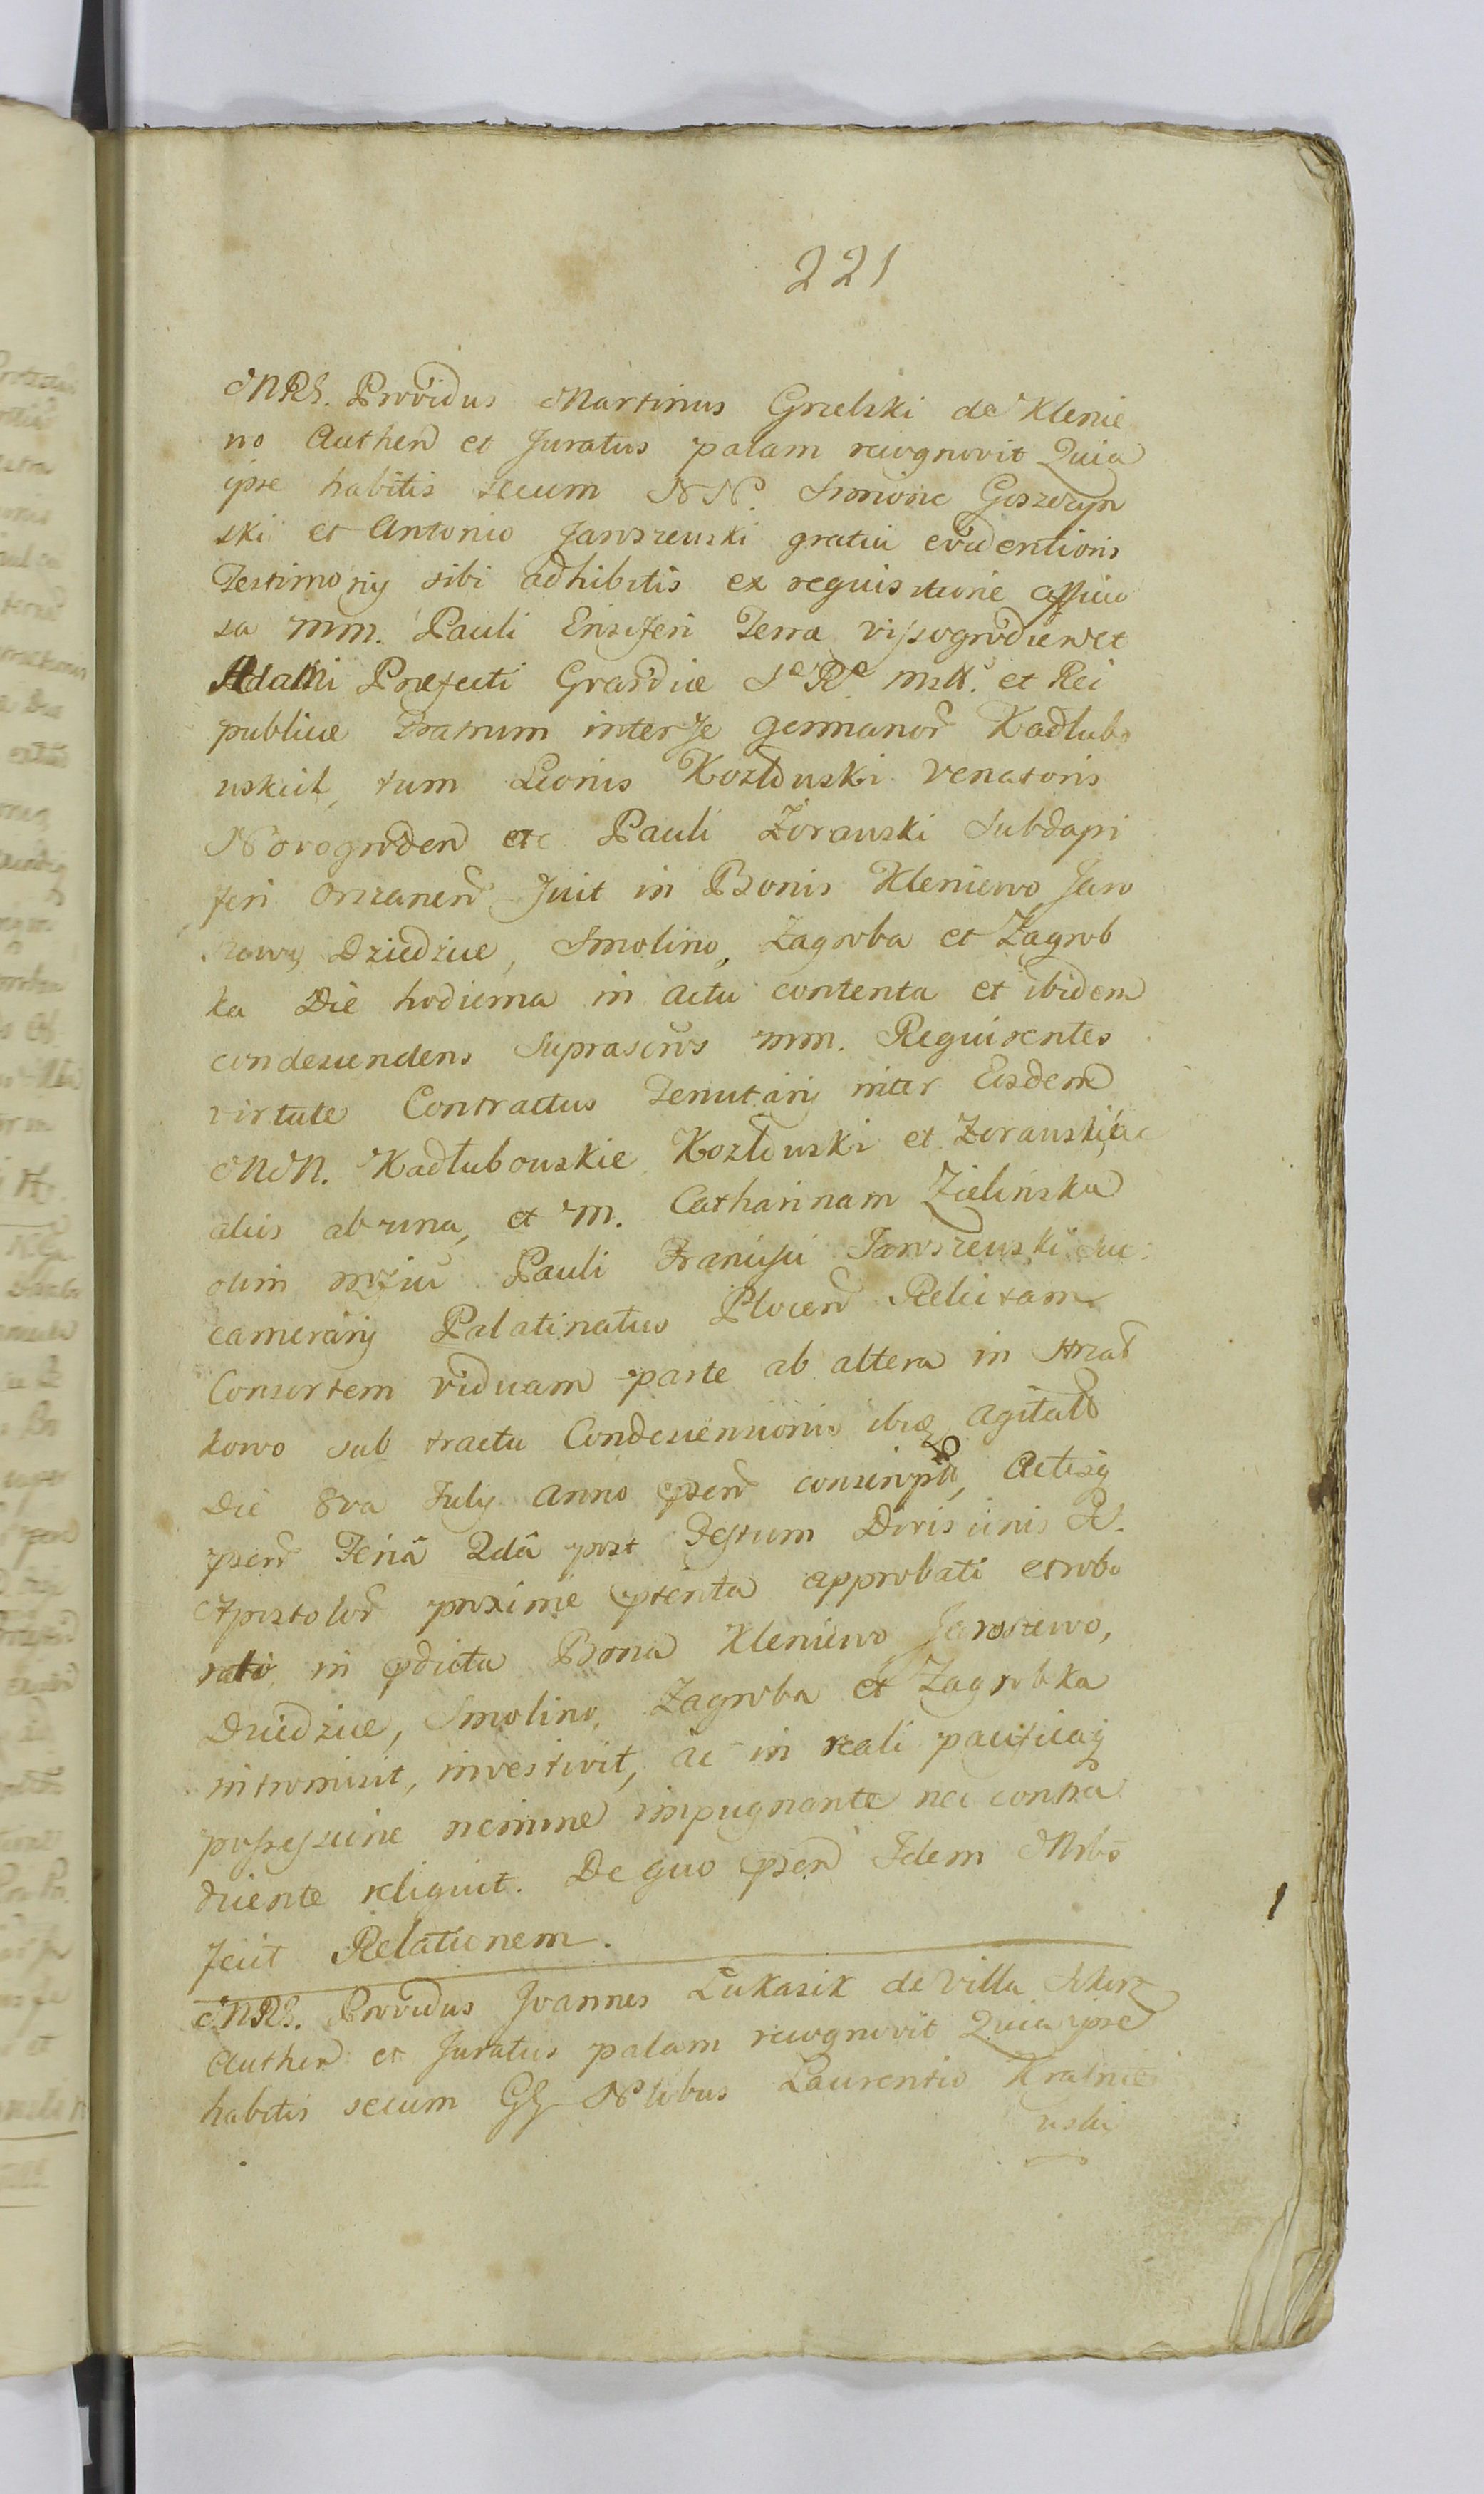 221
MRS. Providus Martinus Grzelski de Klenie
no Authen et Juratus palam recognovit Quia
ipse habitis secum NN. Simone Goszczyn
ski et Antonio Jaroszewski gratia evidentioris
Testimonij sibi adhibitis ex requisitione officio
sa MM. Pauli Ensiferi Terra Wyssogrodien et
Adami Præfecti Gvardiæ Sæ Ræ Mtt. et Rei
publicæ Fratrum inter se germanor Kadlubo
wskich, tum Leonis Kozłowski Venatoris
Novogroden etc Pauli Zorawski Subdapi
feri Orszanen Juit in Bonis Kleniewo Jaro
Dziedzice, Smolino, Zagroba et Zagrob
ka Die hodierna in actu contenta et ibidem
condescendens suprascros MM. Requirentes
virtute Contractus Tenutarij inter Eosdem
MM. Kadłubowskie Kozłowski et Zorawskie
aliis ab una, et M. Catharinam Zielinska
olim Mfici Pauli Francisci Jaroszewski Suc
camerarij Palatinatus Plocen Relictam
Consortem viduam parte ab altera in
kowo sub tractu Condescensionis ibiq agitato
Die 8va Julij anno psen conscripti, Actisq
psen Feriâ 2dâ post Festum Divisionis S.
Apostolor proxime ptenta approbati et robo
rati in pdicta Bona Kleniewo Jaroszewo,
Dziedzice, Smolino, Zagroba et Zagrobka
intromisit, investivit, ac in reali pacificaq
possessione nemine impugnante nec contra
dicente reliquit. De quo psen Idem Mrlis
fecit Relationem.
MRS. Providus Joannes Łukasik de Villa
Authen et Juratus palam recognovit Quia ipse
habitis secum GG Nlibus Laurentio Kralnie
wski